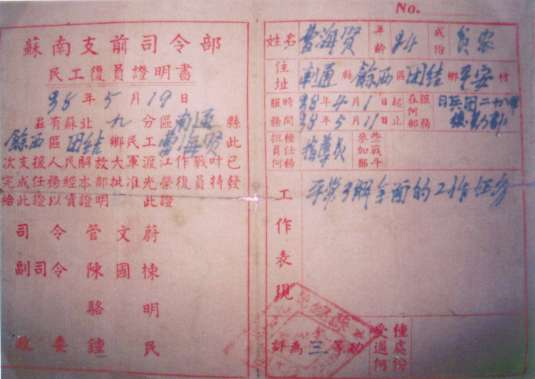 No.
蘇南支前司令部
民工復員證明書
38年5月19日
茲有蘇北九分區南通縣
餘西區团结鄉民工曹海贤此
次支援人民解放大軍渡江作戰 已
完成任務經本部批准光榮復員特發
給此證以資證明 此證
司令 管文蔚
副司令 陳國棟
駱明
政委 鍾民
姓名 曹海贤 年齡 成份 貧农
住址 南通縣餘西區团结鄉平安村
服務時間 38年4月1日起 38年5月11日止 在何部服務
擔任何種任務 指導員 參加何戰鬥
工作表現 平常了解全面的工作任务
評為三等功 受過何種處份